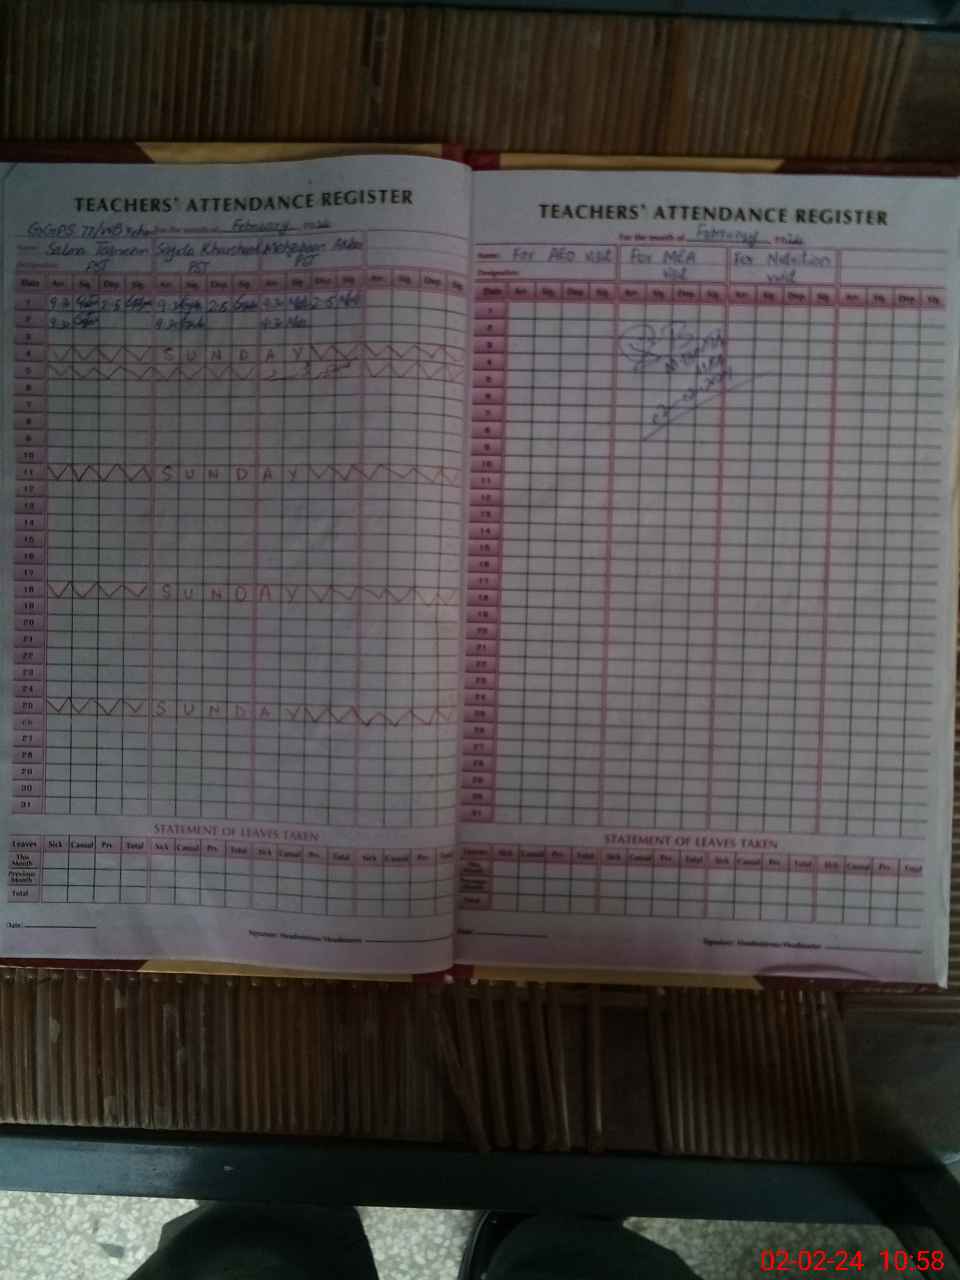 TEACHERS' ATTENDANCE REGISTER
For the month of February
Name: Salma Sajida Khurshed
Designation: PST PST PST
Date Arr. Sig. Dep. Sig. Arr. Sig. Dep. Sig. Arr. Sig. Dep. Sig. Arr. Sig. Dep. Sig.
1 9.30 2.5 9.30 2.5 9.30 2.5
2 9.30 9.30 9.30
3
4 SUNDAY
5
6
7
8
9
10
11 SUNDAY
12
13
14
15
16
17
18 SUNDAY
19
20
21
22
23
24
25 SUNDAY
26
27
28
29
30
31
STATEMENT OF LEAVES TAKEN
Leaves Sick Casual Prv. Total Sick Casual Prv. Total Sick Casual Prv. Total Sick Casual Prv. Total
This Month
Previous Month
Total
Date:
Signature: Headmistress/Headmaster
TEACHERS' ATTENDANCE REGISTER
For the month of February
Name: For AEO visit For MEA visit For Nutrition visit
Designation:
Date Arr. Sig. Dep. Sig. Arr. Sig. Dep. Sig. Arr. Sig. Dep. Sig. Arr. Sig. Dep. Sig.
1
2
3
4
5
6
7
8
9
10
11
12
13
14
15
16
17
18
19
20
21
22
23
24
25
26
27
28
29
30
31
STATEMENT OF LEAVES TAKEN
Leaves Sick Casual Prv. Total Sick Casual Prv. Total Sick Casual Prv. Total Sick Casual Prv. Total
This Month
Previous Month
Total
Date:
Signature: Headmistress/Headmaster
02-02-24 10:58